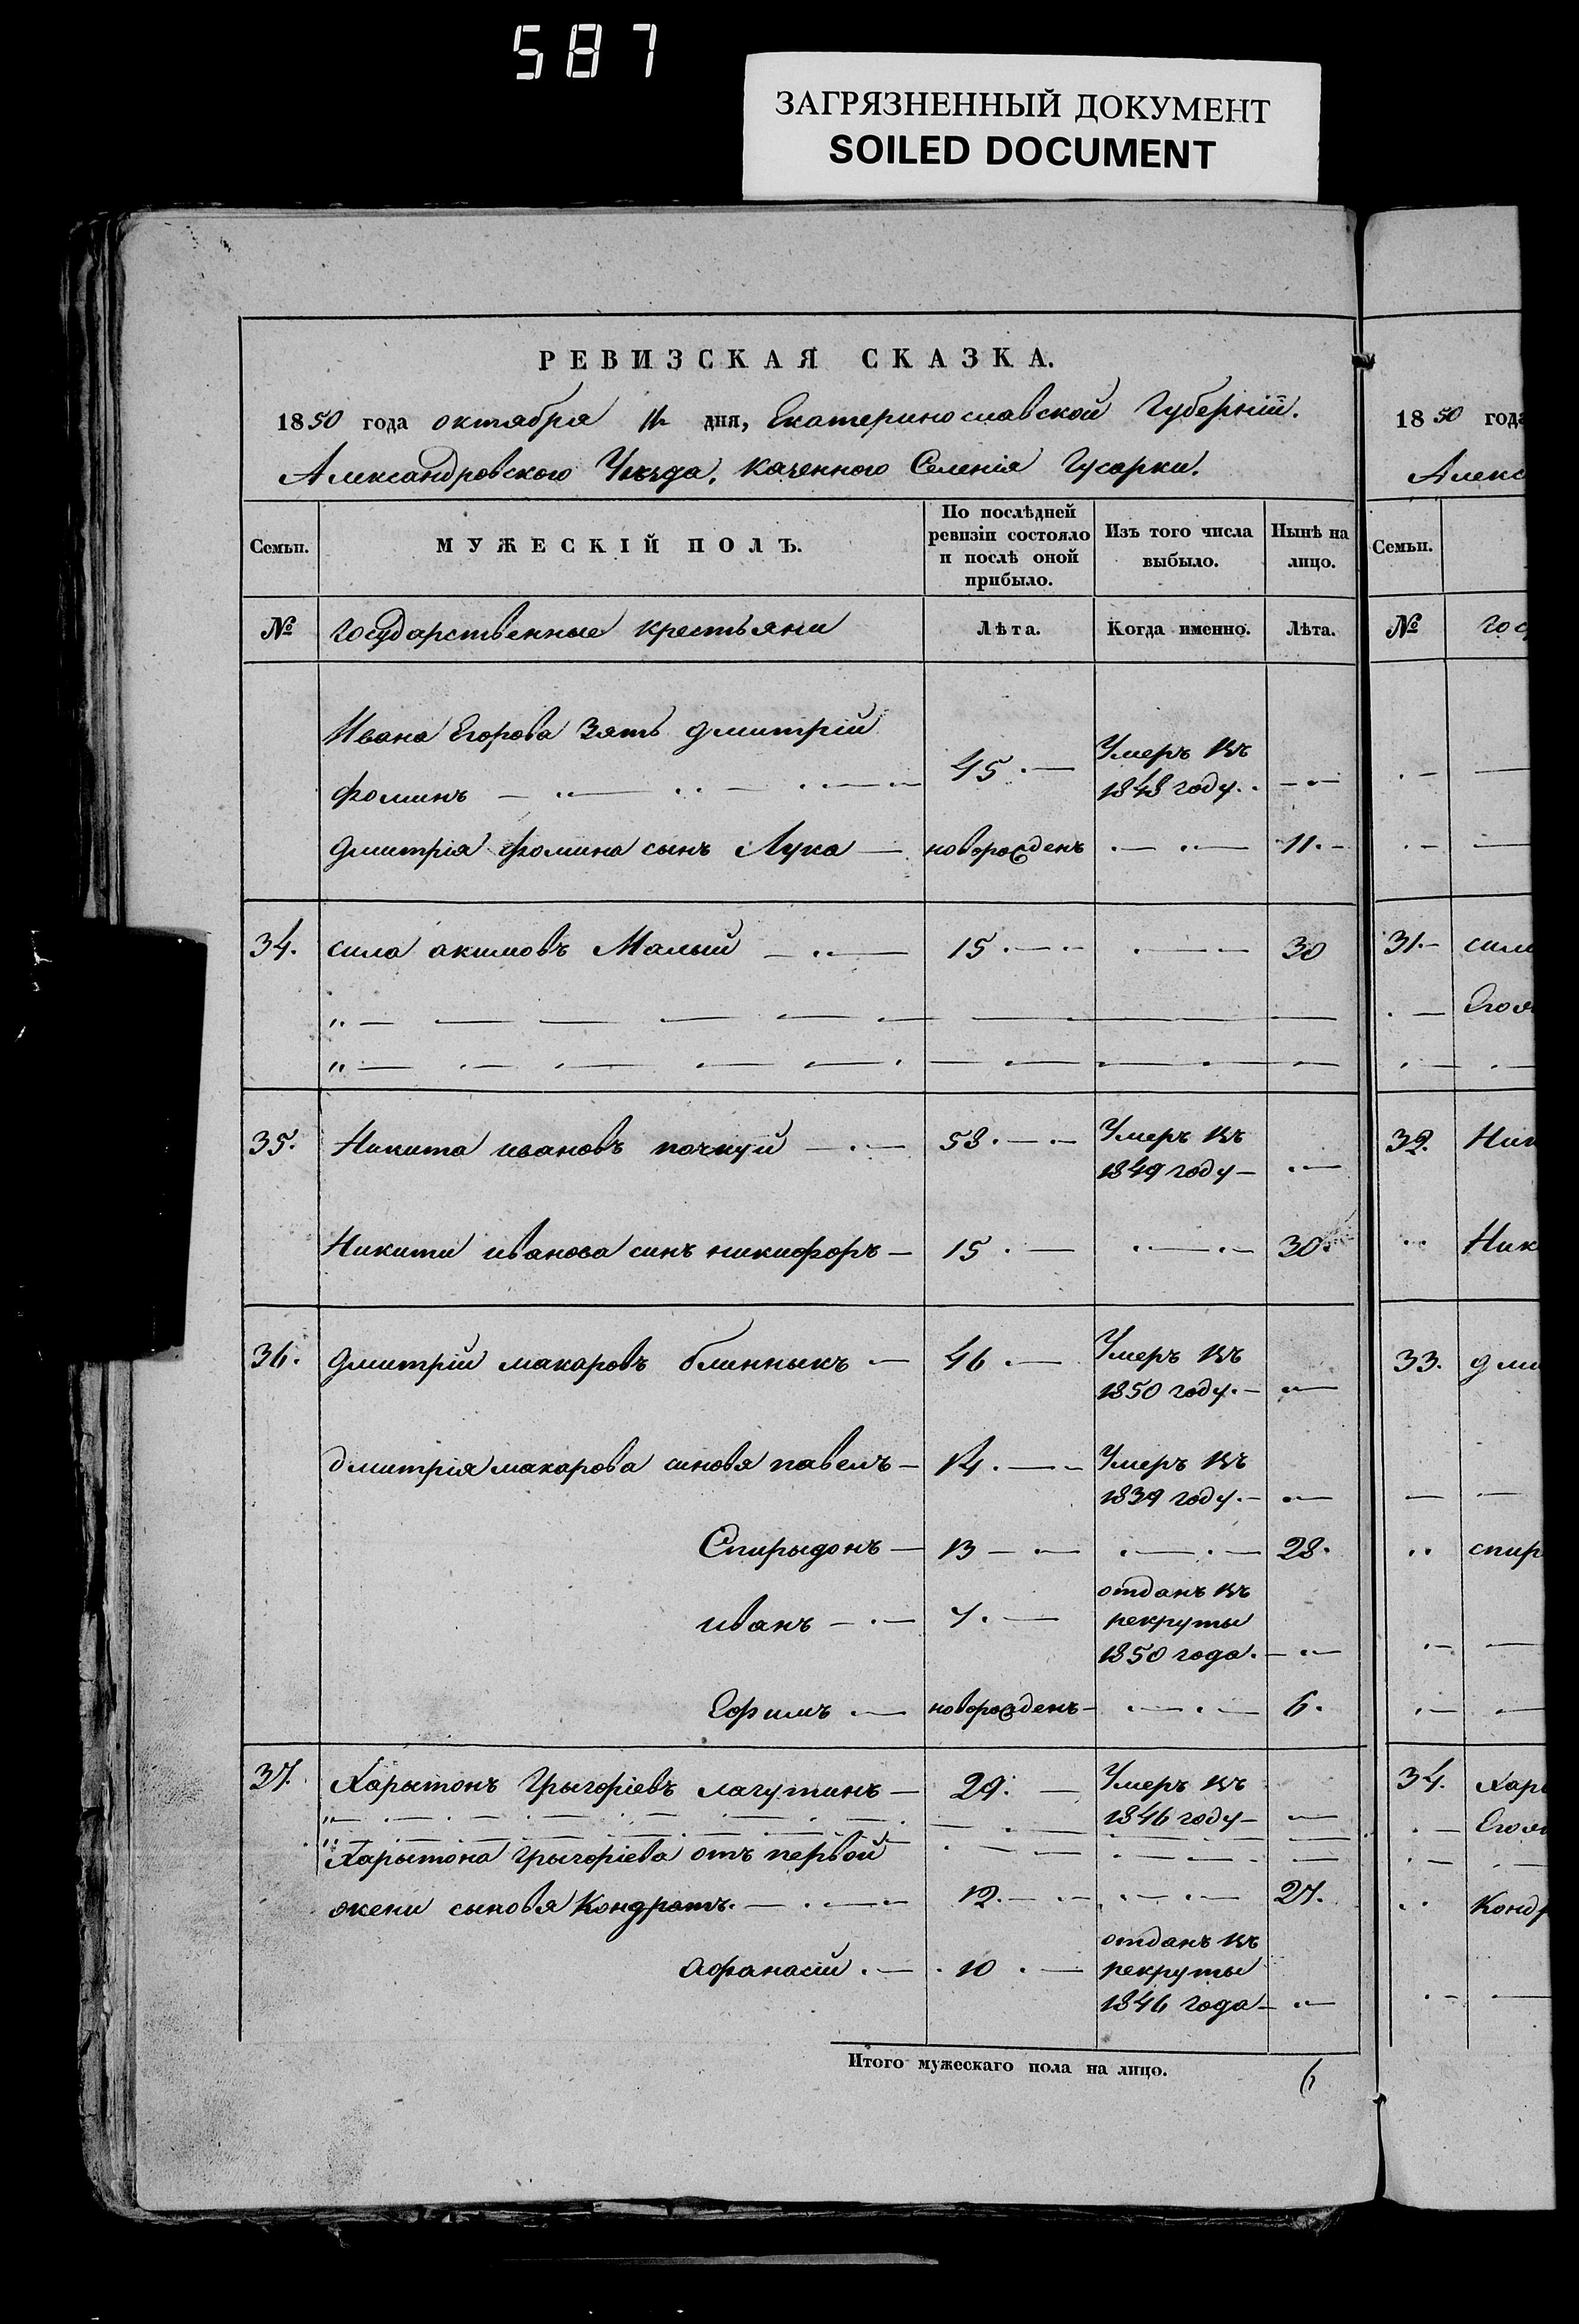 587
ЗАГРЯЗНЕННЫЙ ДОКУМЕНТ
SOILED DOCUMENT
РЕВИЗСКАЯ СКАЗКА.
1850 года октября дня, Екатеринославской Губерніи.
Александровского Уезда, Казенного Селенія Гусарки.
Семьи.
МУЖЕСКІЙ ПОЛЪ.
По послѣдней
ревизіи состояло
и послѣ оной
прибыло.
Изъ того числа
выбыло.
Нынѣ на
лицо.
№ государственные крестьяни Лѣта. Когда именно. Лѣта.
Ивана Егорова Зять дмитрій
фоминъ 45 Умеръ въ
1848 году
дмитрія фомина сынъ Лука новорожденъ 11.
34. сила акимовъ Малый 15 30
35. Никита ивановъ почкуй 58 Умеръ въ
1849 году
Никити иванова синъ никифоръ 15 30
36. дмитрій макаровъ блинныкъ 46 Умеръ въ
1850 году
дмитрія макарова синовя павелъ 14 Умеръ въ
1839 году
Спирыдонъ 13 28.
иванъ 7 отданъ въ
рекруты
1850 года
Ефимъ новорожденъ 6.
37. Харытонъ Грыгоріевъ лагутинъ 29. Умеръ въ
1846 году
Харытона Грыгоріева отъ первой
жени сыновя Кондратъ 12. 27.
афанасій 10 отданъ въ
рекруты
1846 года
Итого мужескаго пола на лицо. 6
1850 года
Алекс
Семьи.
№ гос
31. сили
32. Ник
Ник
33. дми
спир
34. Хар
Конд